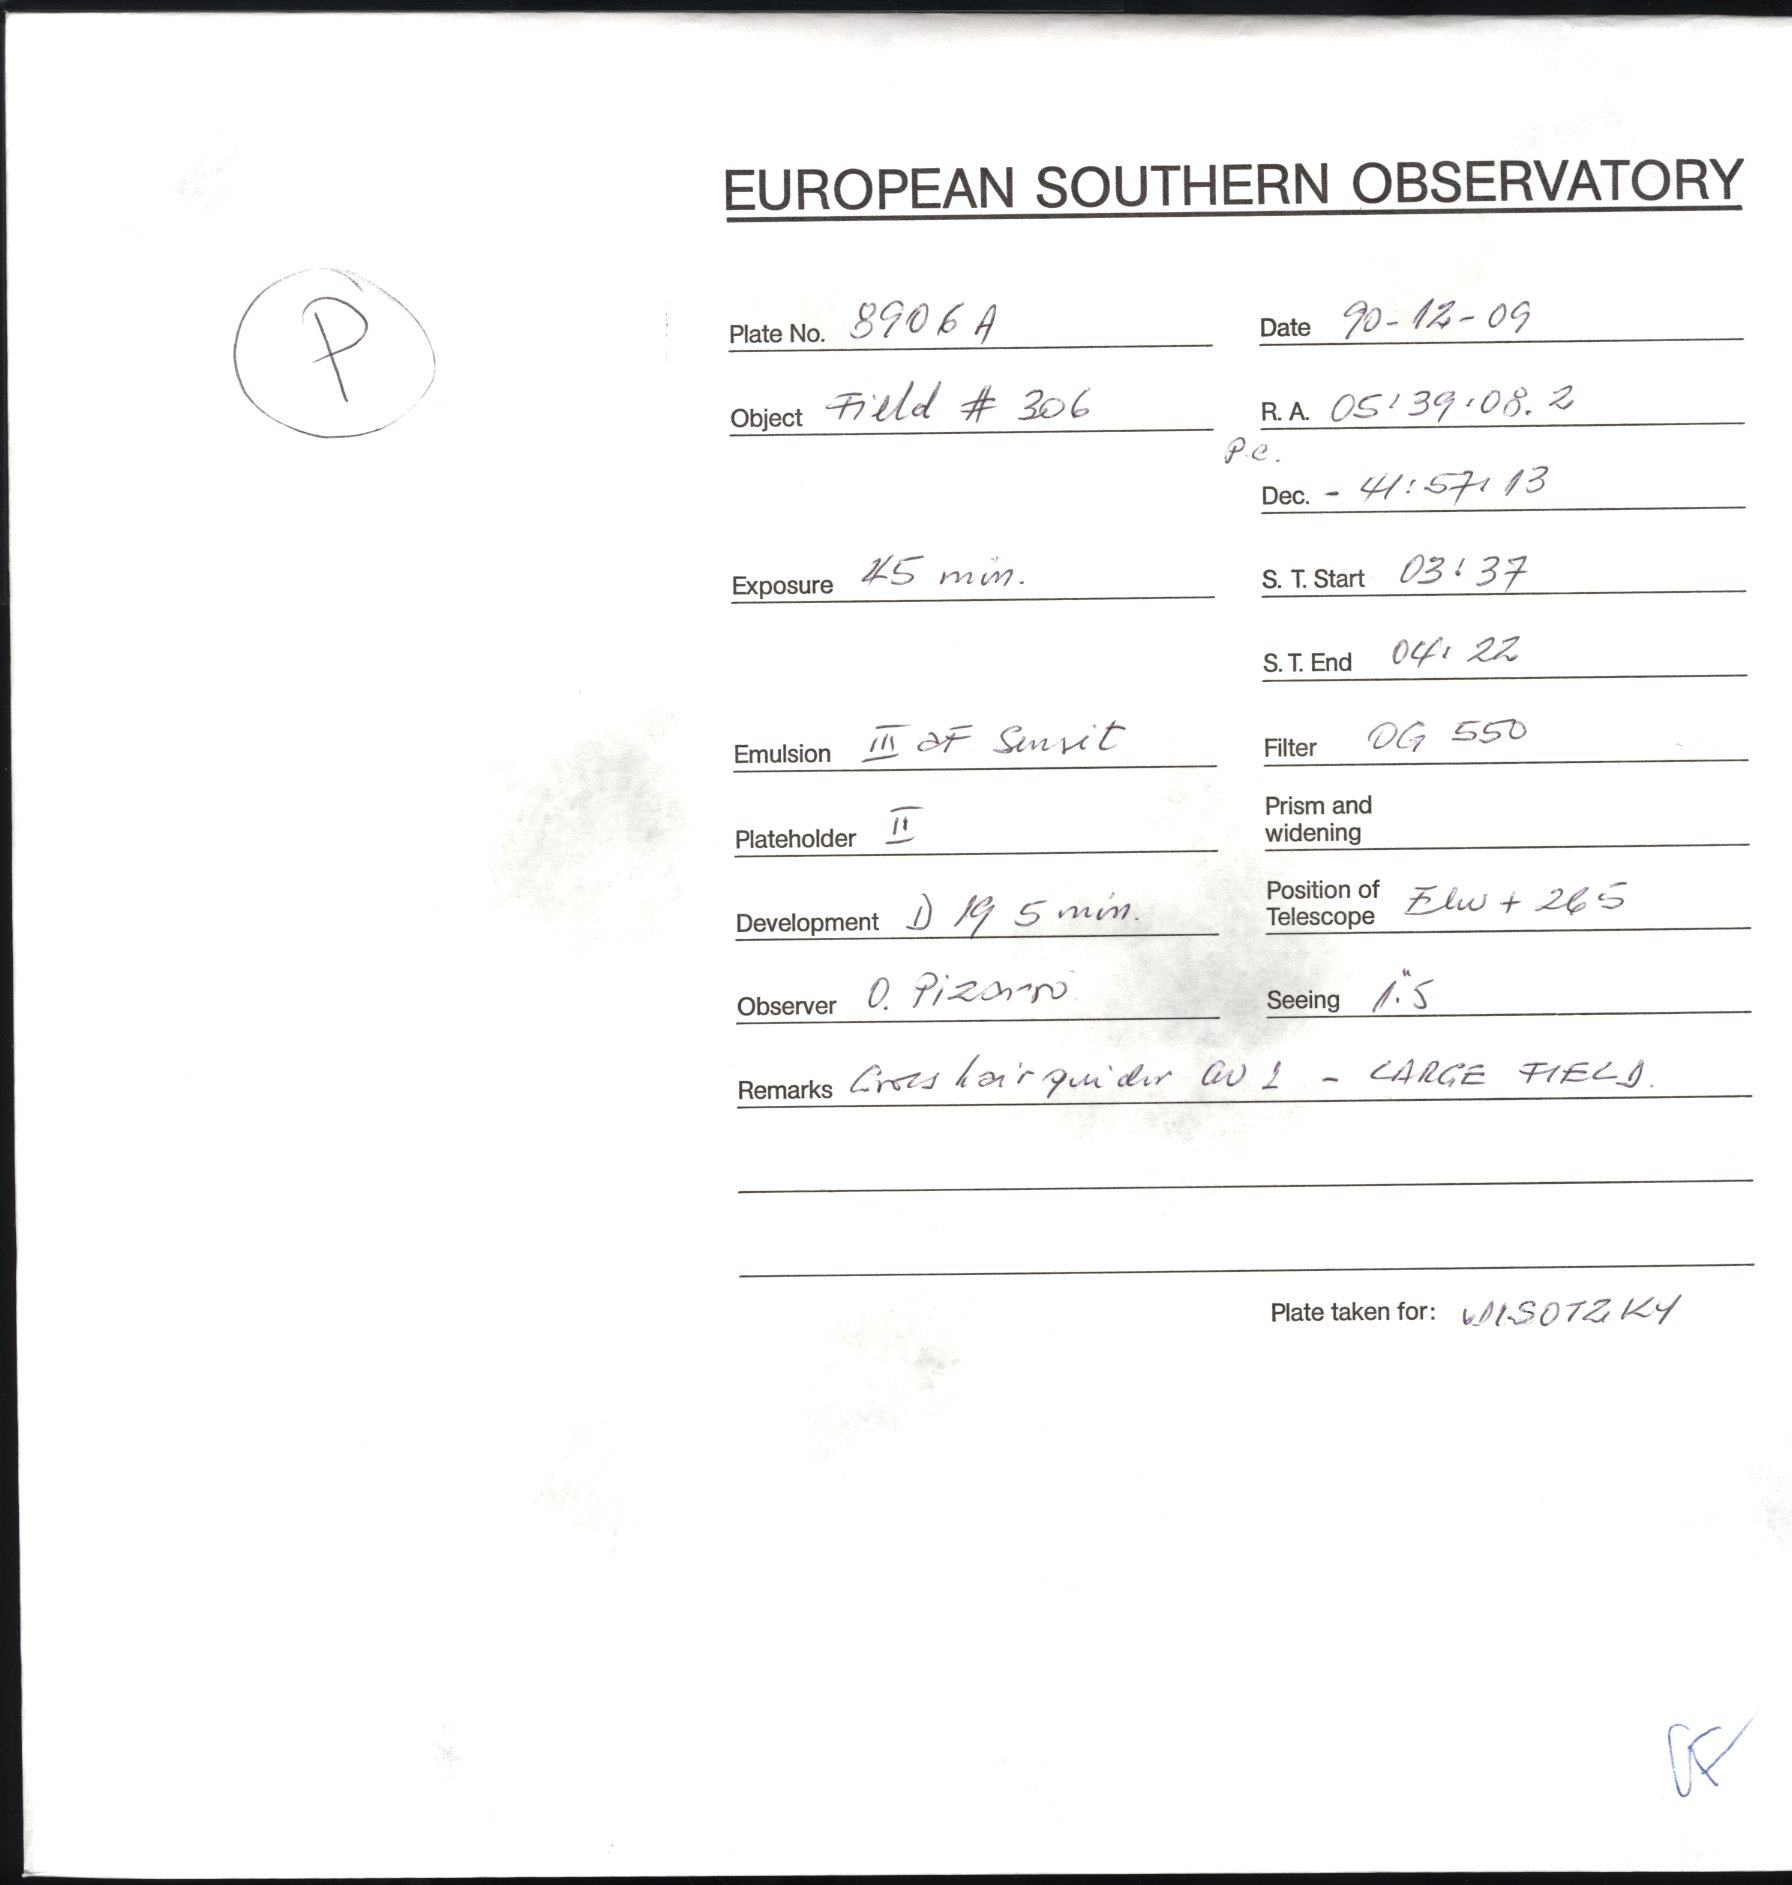 EUROPEAN SOUTHERN OBSERVATORY
P
Plate No. 8906 A
Date 90-12-09
Object Field # 306
R. A. 05:39:08.2
P.C.
Dec. - 41:57:13
Exposure 45 min.
S. T. Start 03:37
S. T. End 04:22
Emulsion III aF Sensit
Filter OG 550
Plateholder II
Prism and
widening
Development D 19 5 min.
Position of
Telescope + 265
Observer O. Pizarro
Seeing 1."5
Remarks Cross hair guider - LARGE FIELD.
Plate taken for: WISOTZKY